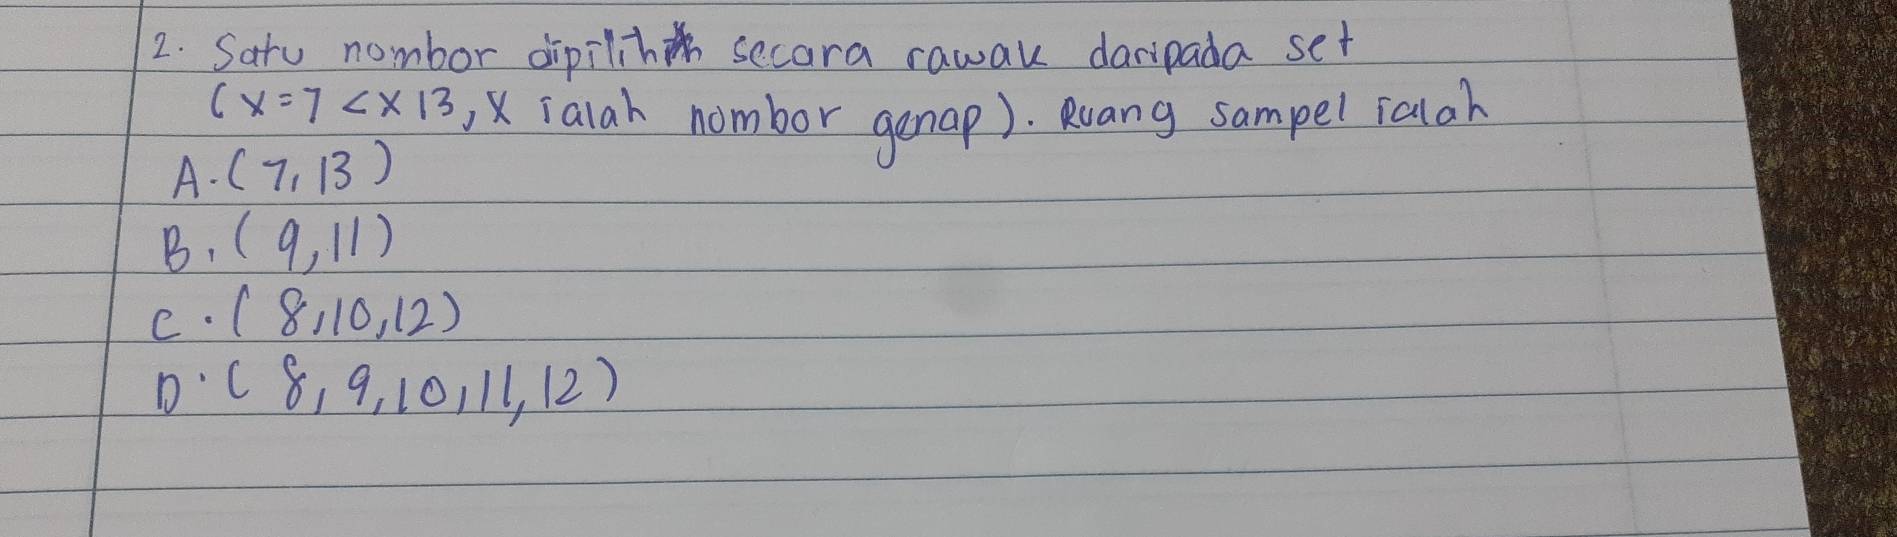 2. Satu nombor dipilih secara rawak daripada set
(x=7 <x 13, x ialah nombor genap). Ruang sampel ialah
A. (7, 13)
B. (9, 11)
C. (8, 10, 12)
D. (8, 9, 10, 11, 12)